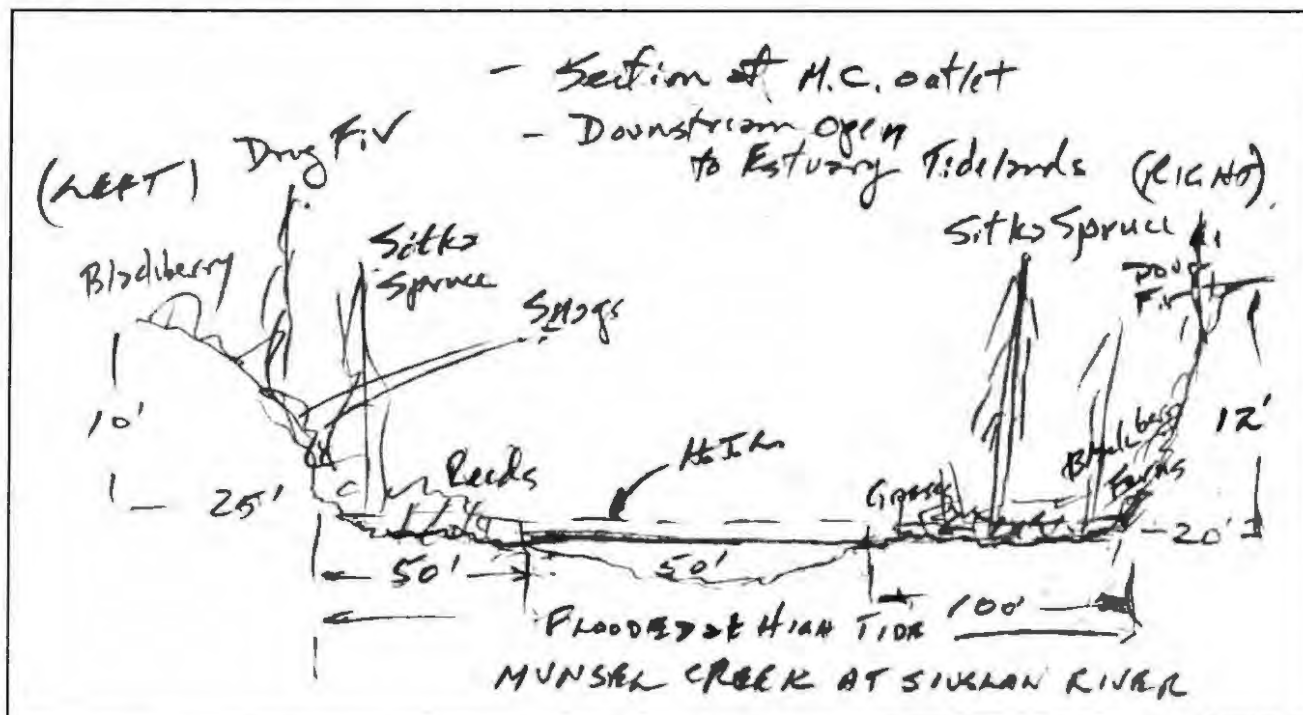 - Section at M.C. outlet
- Downstream open
to Estuary Tidelands
(LEFT)
Doug Fir
(RIGHT)
Sitka Spruce
Sitka
Spruce
Blackberry
Snags
Doug
Fir
10'
12'
Reeds
Grasses
Blackberry
Ferns
- 25'
- 20'
50'
50'
100'
FLOODED at HIGH TIDE
MUNSEL CREEK AT SIUSLAW RIVER